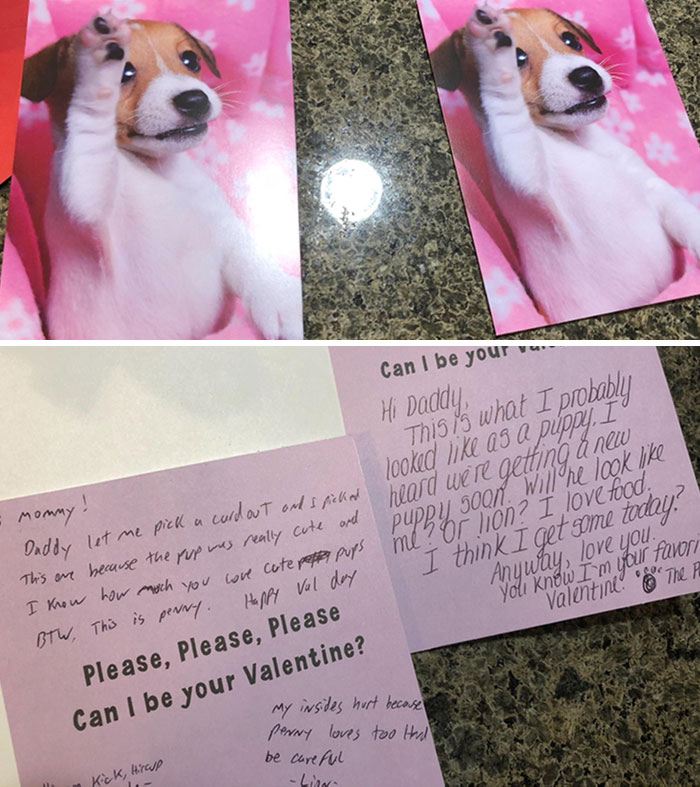 Can I be your Val
Hi Daddy,
This is what I probably
looked like as a puppy. I
heard we're getting a new
puppy soon. Will he look like
me? Or lion? I love food.
I think I get some today?
Anyway, love you.
You know I'm your favori
Valentine.
The P
mommy!
Daddy let me pick a card out and I picked
This one because the pup was really cute and
I know how much you love cute pups
BTW, This is penny. Happy Val day
Please, Please, Please
Can I be your Valentine?
My insides hurt because
Penny loves too Hard
be careful
Kick, Hiccup